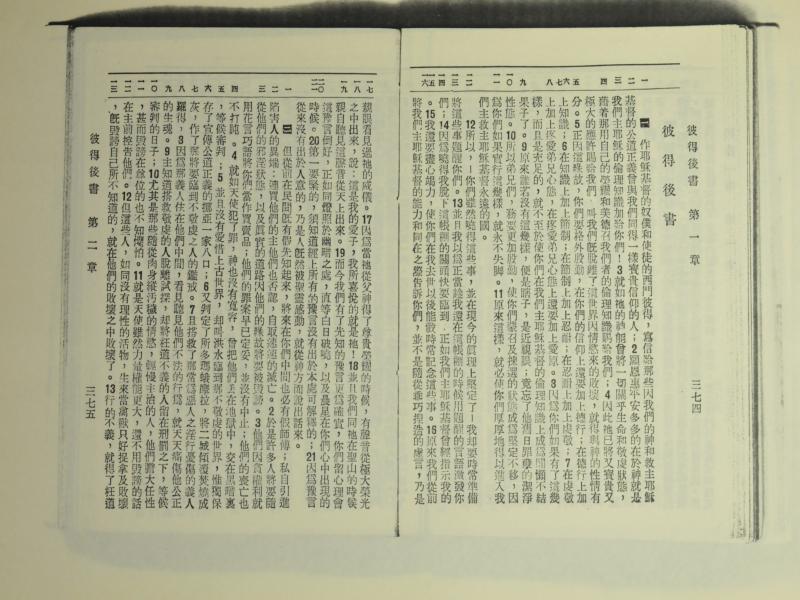 彼得後書 第一章 三七四
彼得後書
一 作耶穌基督的奴僕和使徒的西門彼得，寫信給那些因我們的神和救主耶穌
基督的公道正義曾與我們同得一樣寶貴信仰的人；2願恩惠平安多多的在於神就是
我們主耶穌的倫理知識加給你們！3就如祂的神能曾將一切關乎生命和敬虔狀態，
藉着那用自己的榮耀和美德召我們者的倫理知識賜給我們；4因此祂已將又寶貴又
極大的應許賜給我們，叫我們既脫離了這世界因情慾來的敗壞，就得與神的性情有
分。5正因這緣故，你們要格外殷勤，在你們的信仰上還要加上德行；在德行上加
上知識；6在知識上加上節制；在節制上加上忍耐；在忍耐上加上虔敬；7在虔敬
上加上愛弟兄心態，在疼愛弟兄心態上還要加上愛原。8因爲你們如果有了這幾
樣，而且是充足的，就不至於使你們在我們主耶穌基督的倫理知識上成爲閒懶不結
果子了。9原來誰若沒有這幾樣，便是瞎子，是近視眼；竟忘了他舊日罪孽的潔淨
性態。10所以弟兄們，務要更加殷勤，使你們蒙召及揀選的狀態成爲堅定不移，因
爲你們如果實行這幾樣，就永不失脚。11原來這樣，就必使你們厚厚地得以進入我
們主救主耶穌基督永遠的國。
12所以，你們雖然曉得這些事，並在現今的眞理上堅定了，我却要時常準備
將這些事題醒你們。13並且我以爲正當趁我還在這帳棚的時候用題醒的言語激發你
們；14因爲曉得我脫下這帳棚的關頭快要臨到，正如我們主耶穌基督曾經指示我的
。15我還要盡心竭力，使你們在我去世以後能時常記念這些事。16原來我們從前
將我們主耶穌基督的能力和同在之臨告訴你們，並不是隨從乖巧捏造的虛言，乃是
彼得後書 第二章 三七五
親眼看見過祂的威儀。17因爲當祂從父神得了尊貴榮耀的時候，有聲音從極大榮光
之中出來，說：這是我的愛子，我所喜悅的就是祂！18並且我們同祂在聖山的時候
親自聽見這聲音從天上出來。19而今我們有了先知的預言更爲確實，你們留心理會
這預言倒好，正如同燈照於幽暗之處，直等白日破曉，以及晨星在你們心中出現的
時候。20第一要緊的，須知道經上所有的預言沒有出於本處可解釋的；21因爲預言
從來沒有出於人意的，乃是人旣然被聖靈感動，就從神方面說出話來。
二 但從前在民間旣有假先知起來，將來在你們中間也必有假師傅；私自引進
陷害人的異端；連買他們的主他們也否認，自取速速的滅亡。2於是許多人將要隨
從他們的邪淫狀態，以及眞實的道路因他們的緣故將要被毀謗。3他們因貪權利就
用花言巧語將你們當作買賣品；他們的罪案早已定妥，並沒有中止；他們的喪亡也
不打盹。4就如天使犯了罪，神也沒有寬容，曾把他們丟在地獄中，交在黑暗裏
，等候審判；5並且沒有愛惜上古世界，却叫洪水臨到那不敬虔的世界，惟獨保
存了宣傳公道正義的挪亞一家八口；6又判定了所多瑪蛾摩拉，將二城傾覆焚燒成
灰，作了那將要臨到不敬虔之人的鑑戒。7且搭救了那常爲惡人之淫行憂傷的義人
羅得，8因爲那義人住在他們中間，看見聽見他們不法的行爲，就天天痛傷他公正
的生魂。9主知道搭救敬虔的人脫離試探，却將枉道不義的人留在刑罰之下，等候
審判的日子；10尤其是那些隨從肉身縱汚穢的情慾，輕慢主治的人。他們膽大任性
，甚而毀謗在尊位的也不知懼怕。11就是天使雖然力量權能更大，還不用毀謗的話
在主前控告他們。12但這些人，如同沒有理性的活物，生來當禽獸只好捉拿及敗壞
，旣毀謗自己所不知道的，就在他們的敗壞之中敗壞了。13行的不義，就得了枉道